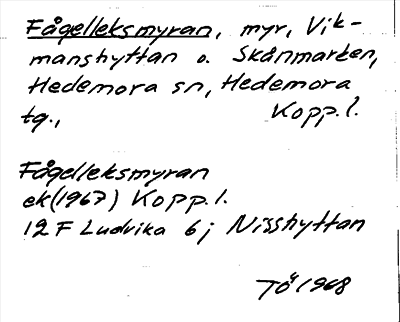 Fågelleksmyran, myr, Vik-
manshyttan o. Skånmarken,
Hedemora sn, Hedemora
tg., Kopp.l.
Fågelleksmyran
ek(1967) Kopp.l.
12 F Ludvika 6j Nisshyttan
TÖ 1968